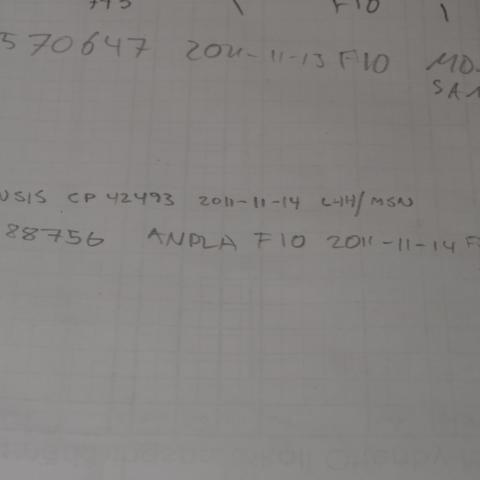 745 F10
570647 2011-11-13 F10 MD
SAN
USIS CP 42493 2011-11-14 L4H/MSN
88756 ANPLA F10 2011-11-14 F